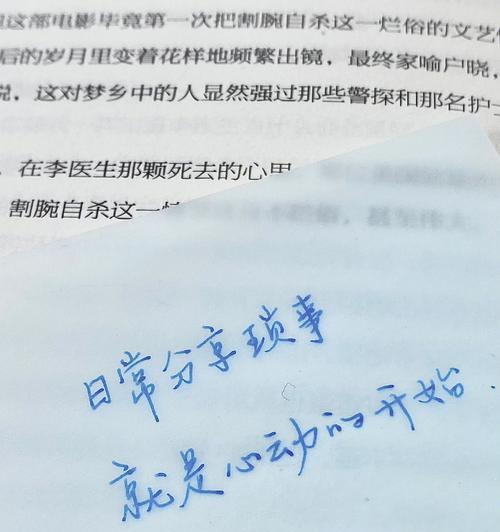 这部电影毕竟第一次把割腕自杀这一烂俗的文艺
后的岁月里变着花样地频繁出镜，最终家喻户晓，
说，这对梦乡中的人显然强过那些警探和那名护士
，在李医生那颗死去的心里
割腕自杀这一烂
日常分享琐事
就是心动的开始．